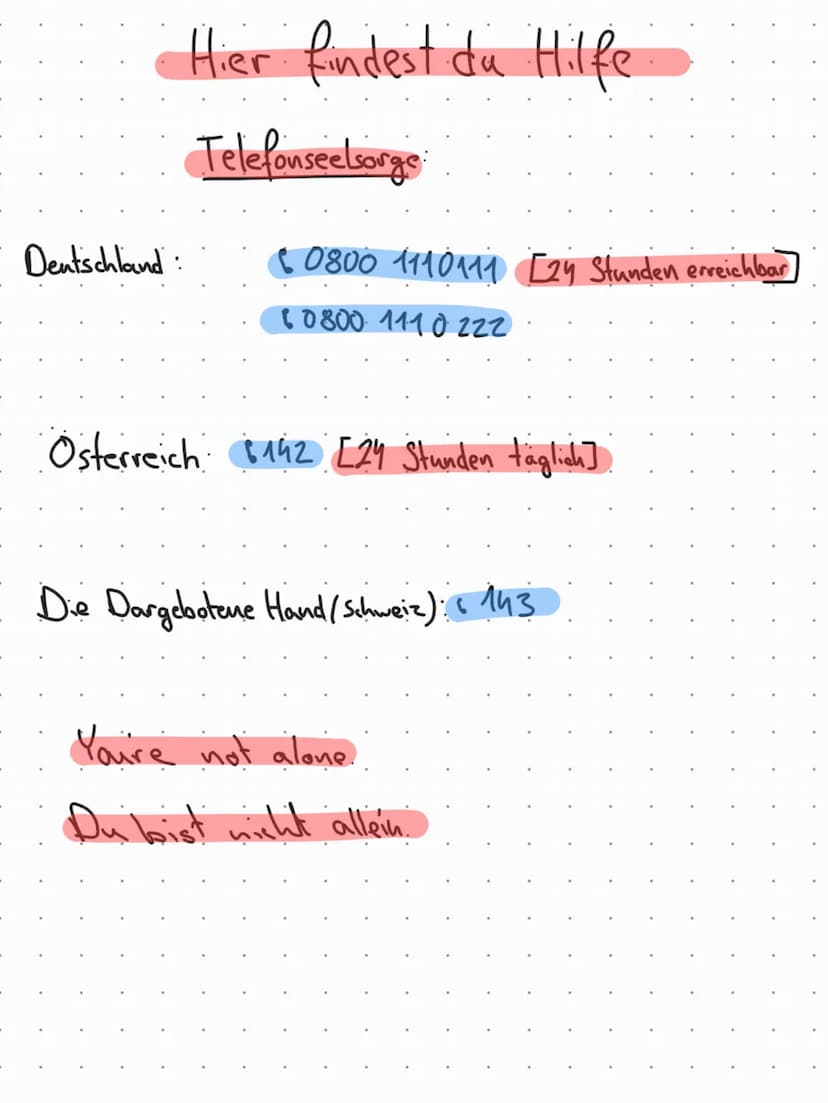 Hier findest du Hilfe
Telefonseelsorge:
Deutschland: 0800 1110111 [24 Stunden erreichbar]
0800 1110 222
Österreich: 142 [24 Stunden täglich]
Die Dargebotene Hand (Schweiz): 143
You're not alone.
Du bist nicht allein.